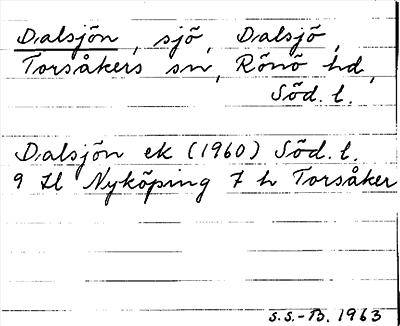 Dalsjön, sjö, Dalsjö,
Torsåkers sn, Rönö hd,
Söd. l.
Dalsjön ek (1960) Söd. l.
9 H Nyköping 7 h Torsåker
S.S.-B. 1963